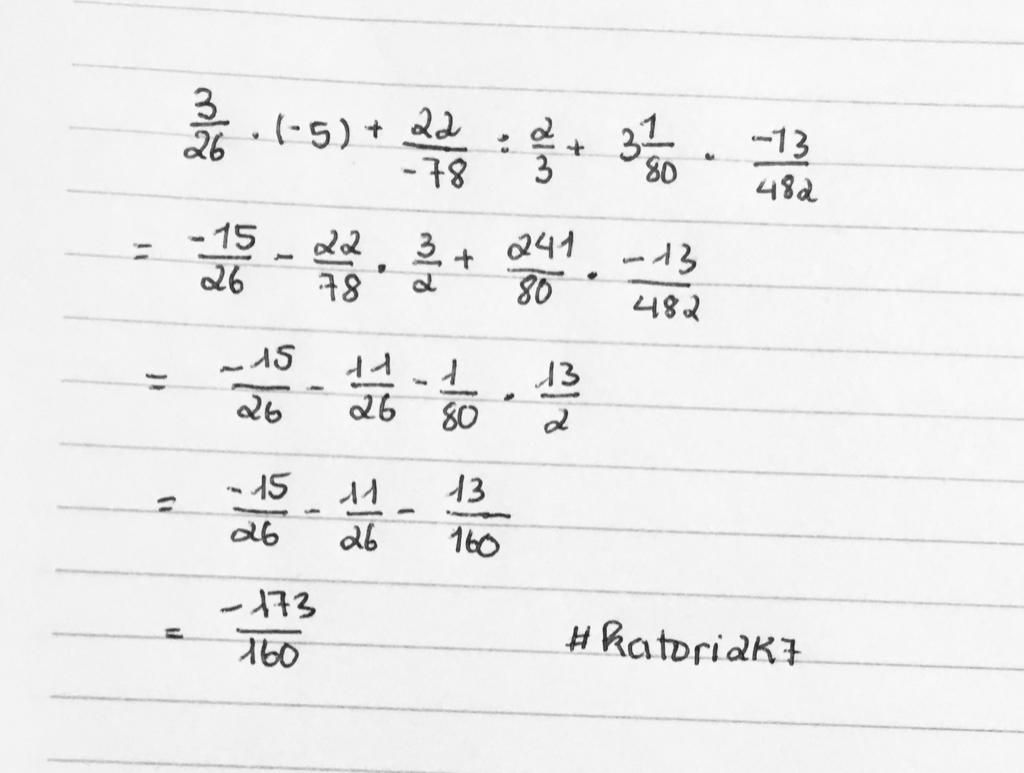 3/26 . (-5) + 22/-78 : 2/3 + 3 1/80 . -13/482
= -15/26 - 22/78 . 3/2 + 241/80 . -13/482
= -15/26 - 11/26 - 1/80 . 13/2
= -15/26 - 11/26 - 13/160
= -173/160 #Ratori2K7